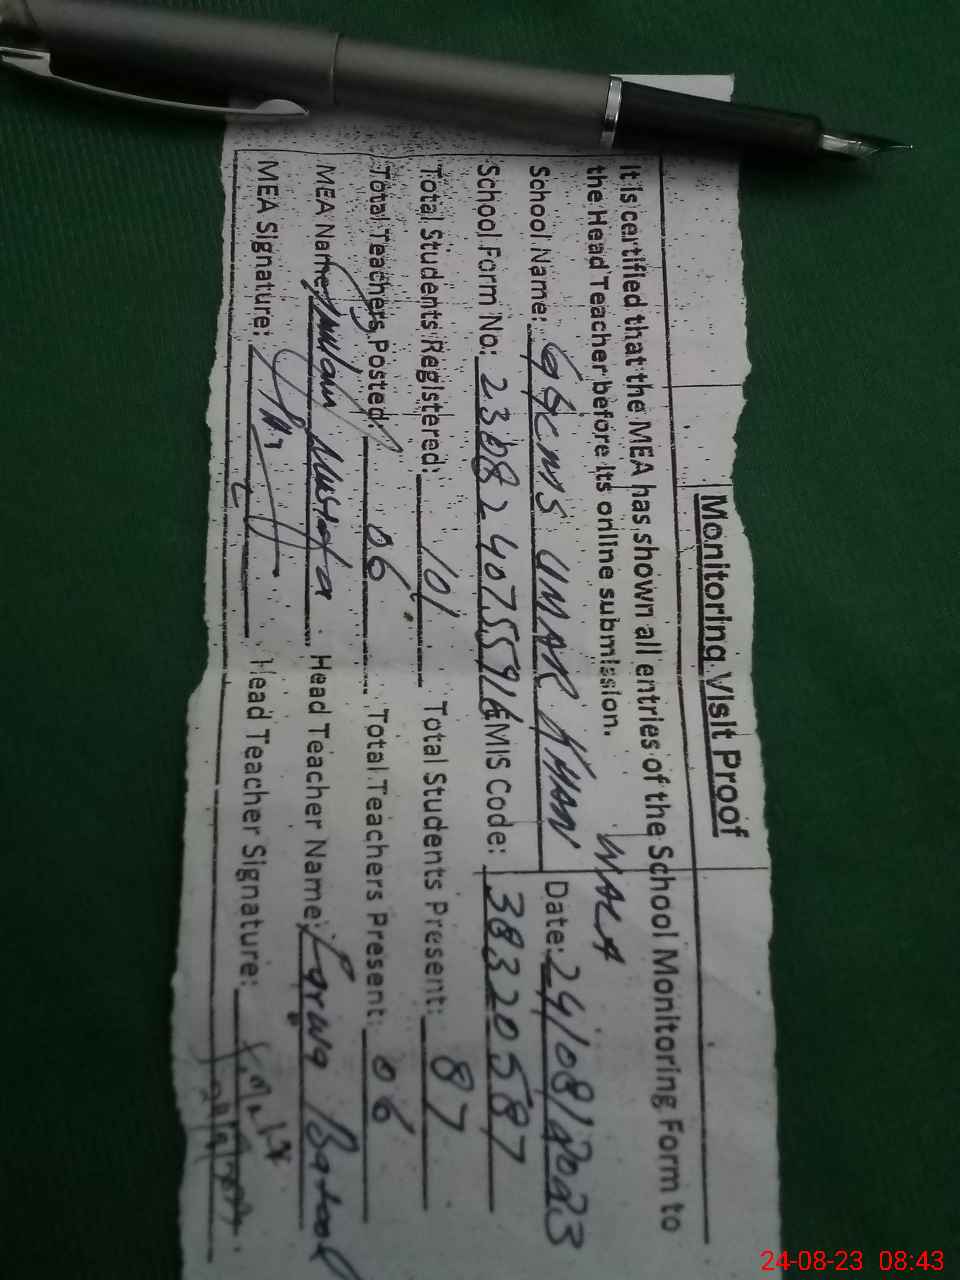 Monitoring Visit Proof
It is certified that the MEA has shown all entries of the School Monitoring Form to
the Head Teacher before its online submission.
School Name: GGCMS UMAR KHAN WALA Date: 24/08/2023
School Form No: EMIS Code: 38320587
Total Students Registered: 101 Total Students Present: 87
Total Teachers Posted: 06 Total Teachers Present: 06
MEA Name: Ghulam Mustafa Head Teacher Name: Batool
MEA Signature: Head Teacher Signature:
24-08-23 08:43